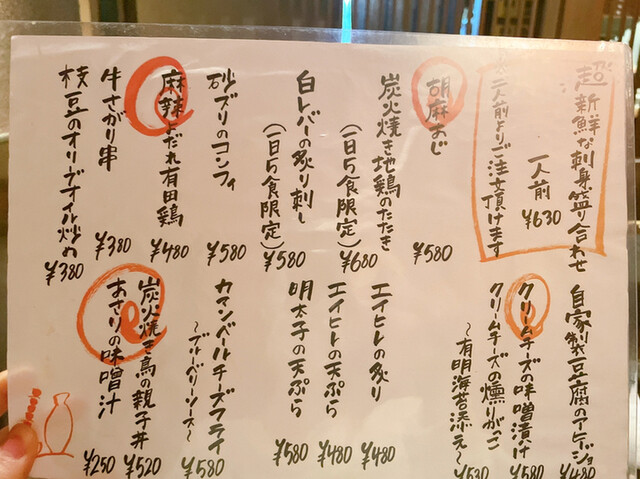 超新鮮な刺身盛り合わせ
一人前 ¥630
※二人前よりご注文頂けます
胡麻あじ ¥580
炭火焼き地鶏のたたき
(一日5食限定) ¥680
白レバーの炙り刺し
(一日5食限定) ¥580
砂ズリのコンフィ ¥580
麻辣よだれ有田鶏 ¥480
牛さがり串 ¥380
枝豆のオリーブオイル炒め ¥380
自家製豆腐のアヒージョ ¥480
クリームチーズの味噌漬け ¥580
クリームチーズの燻りがっこ
～有明海苔添え～ ¥530
エイヒレの炙り ¥480
エイヒレの天ぷら ¥480
明太子の天ぷら ¥580
カマンベールチーズフライ
～ブルーベリーソース～ ¥580
炭火焼き鳥の親子丼 ¥520
あさりの味噌汁 ¥250